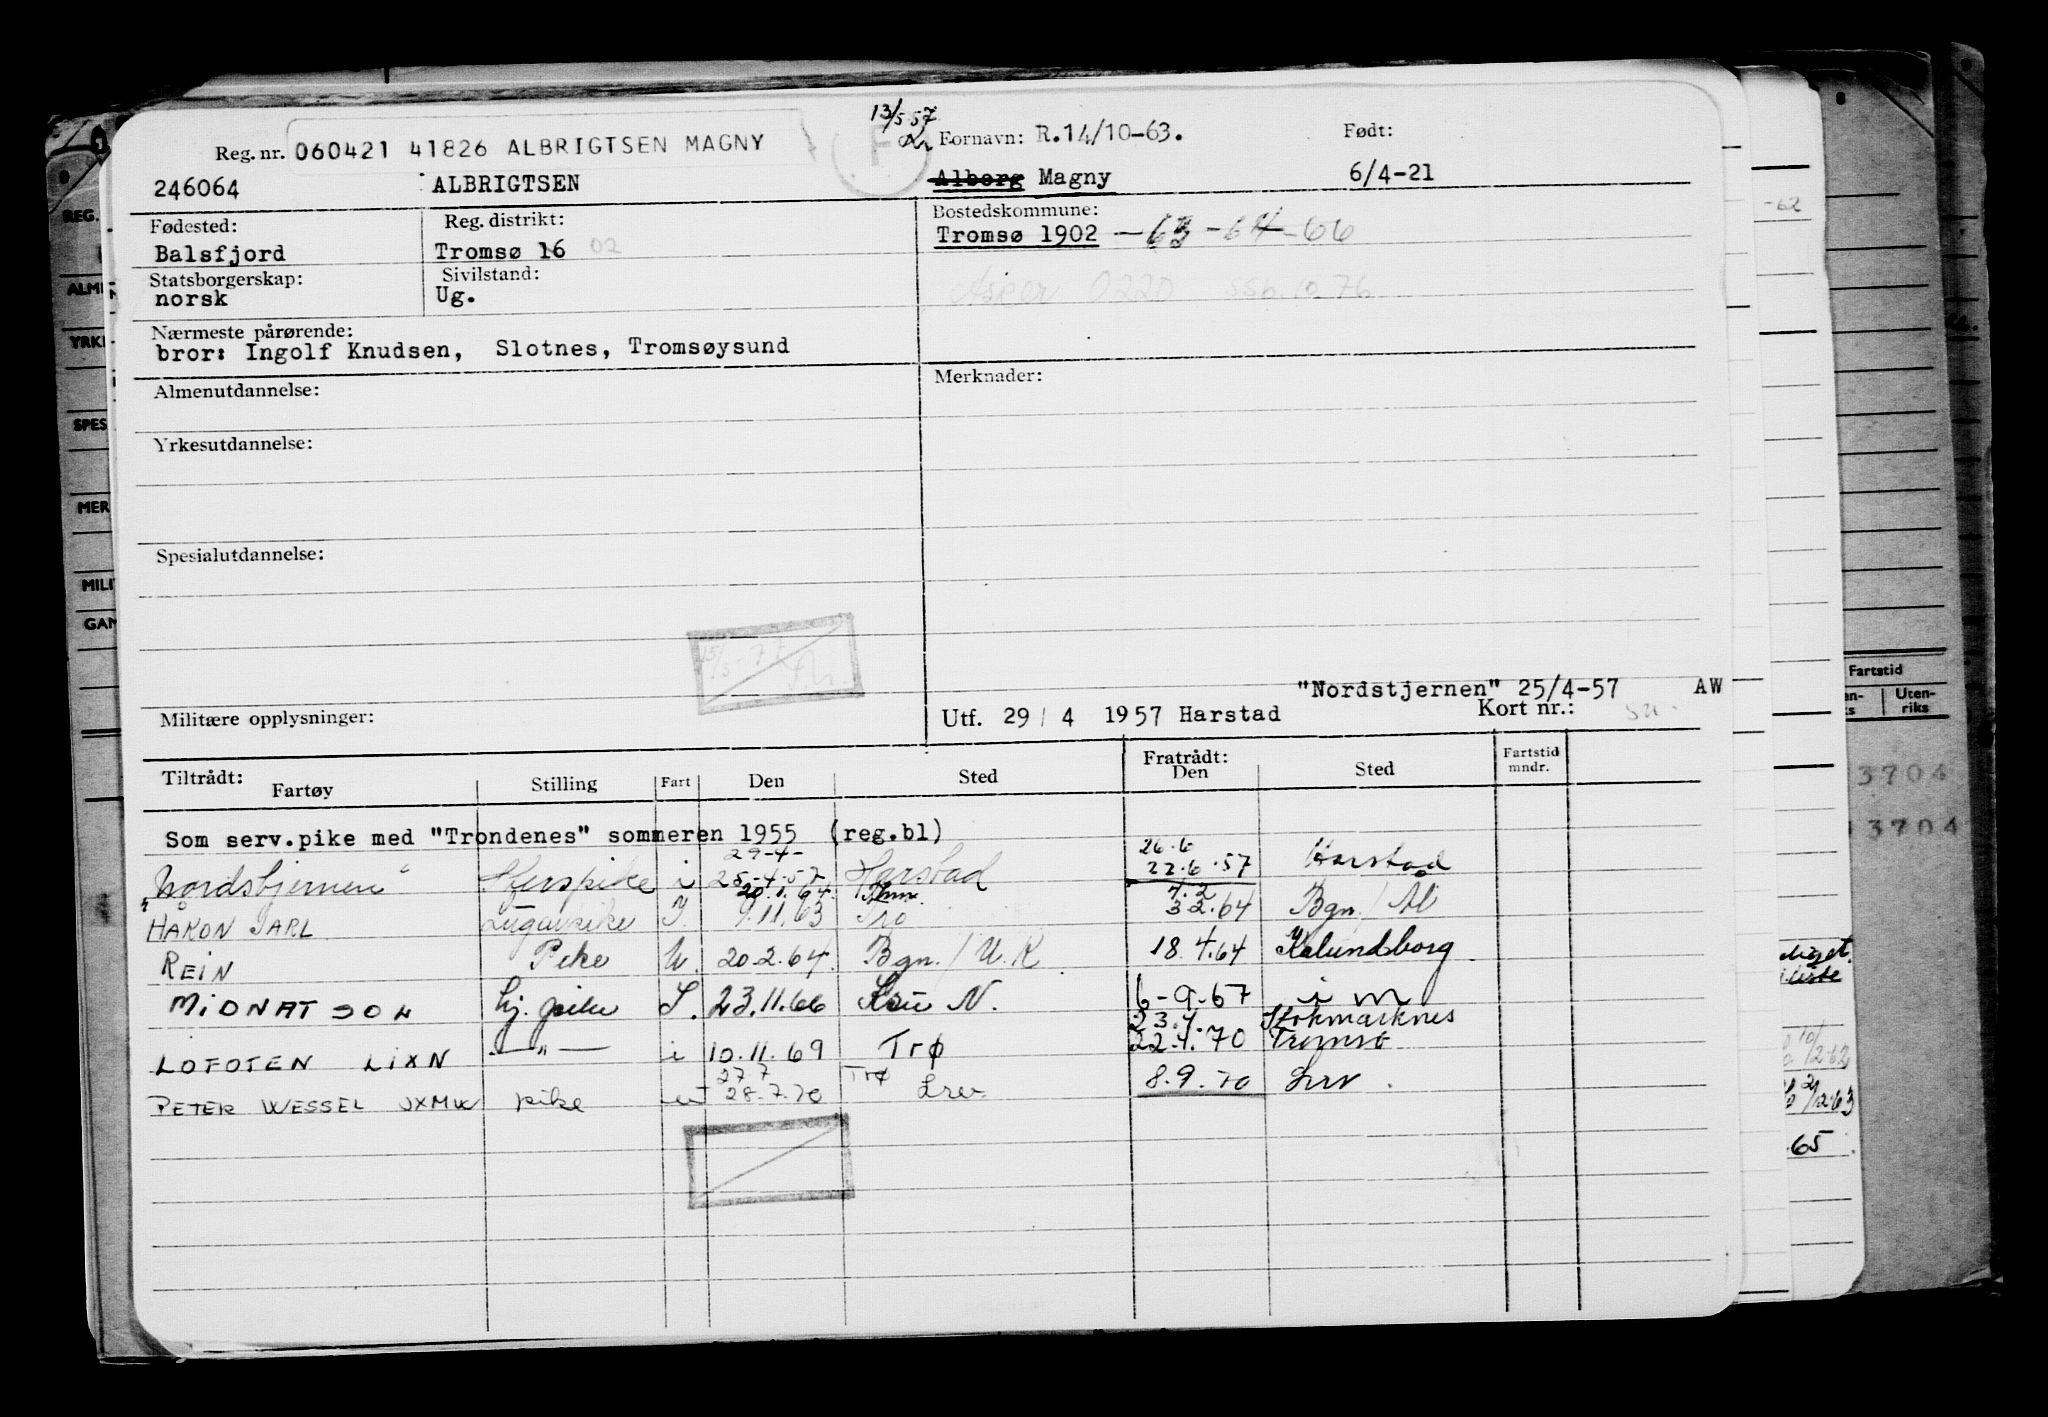 13/5 57
Reg. nr. 060421 41826 ALBRIGTSEN MAGNY F Fornavn: R.14/10-63. Født:
246064 ALBRIGTSEN Alborg Magny 6/4-21
Fødested: Reg. distrikt: Bostedskommune:
Balsfjord Tromsø 16 02 Tromsø 1902 - 63 - 64 - 66
Statsborgerskap: Sivilstand:
norsk Ug. Asker 0220 ssb. 10. 76
Nærmeste pårørende:
bror: Ingolf Knudsen, Slotnes, Tromsøysund
Almenutdannelse: Merknader:
Yrkesutdannelse:
Spesialutdannelse:
15/5-77
"Nordstjernen" 25/4-57 AW
Militære opplysninger: Utf. 29 / 4 1957 Harstad Kort nr.:
Tiltrådt: Fratrådt: Fartstid
Fartøy Stilling Fart Den Sted Den Sted mndr.
Som serv.pike med "Trondenes" sommeren 1955 (reg.bl)
29-4- 26.6
"Nordstjernen" i 25-4-57 Harstad 22.6.57 Harstad
20.1.64 7.2
HAKON JARL Lugarpike I 9.11.63 Tro 3 2.64 Bgn. / Ål
REIN Pike U. 20.2.64. Bgn. / U.K. 18.4.64 Kalundborg
MIDNATSOL hj. pike I. 23.11.66 Kru N. 6-9-67 i m
23.4. Stokmarknes
LOFOTEN LIXN -"- i 10.11.69 Trø 22.4.70 Tromsø
27.7 Trø
PETER WESSEL JXMW pike u 28.7.70 Lrv. 8.9.70 Lrv.